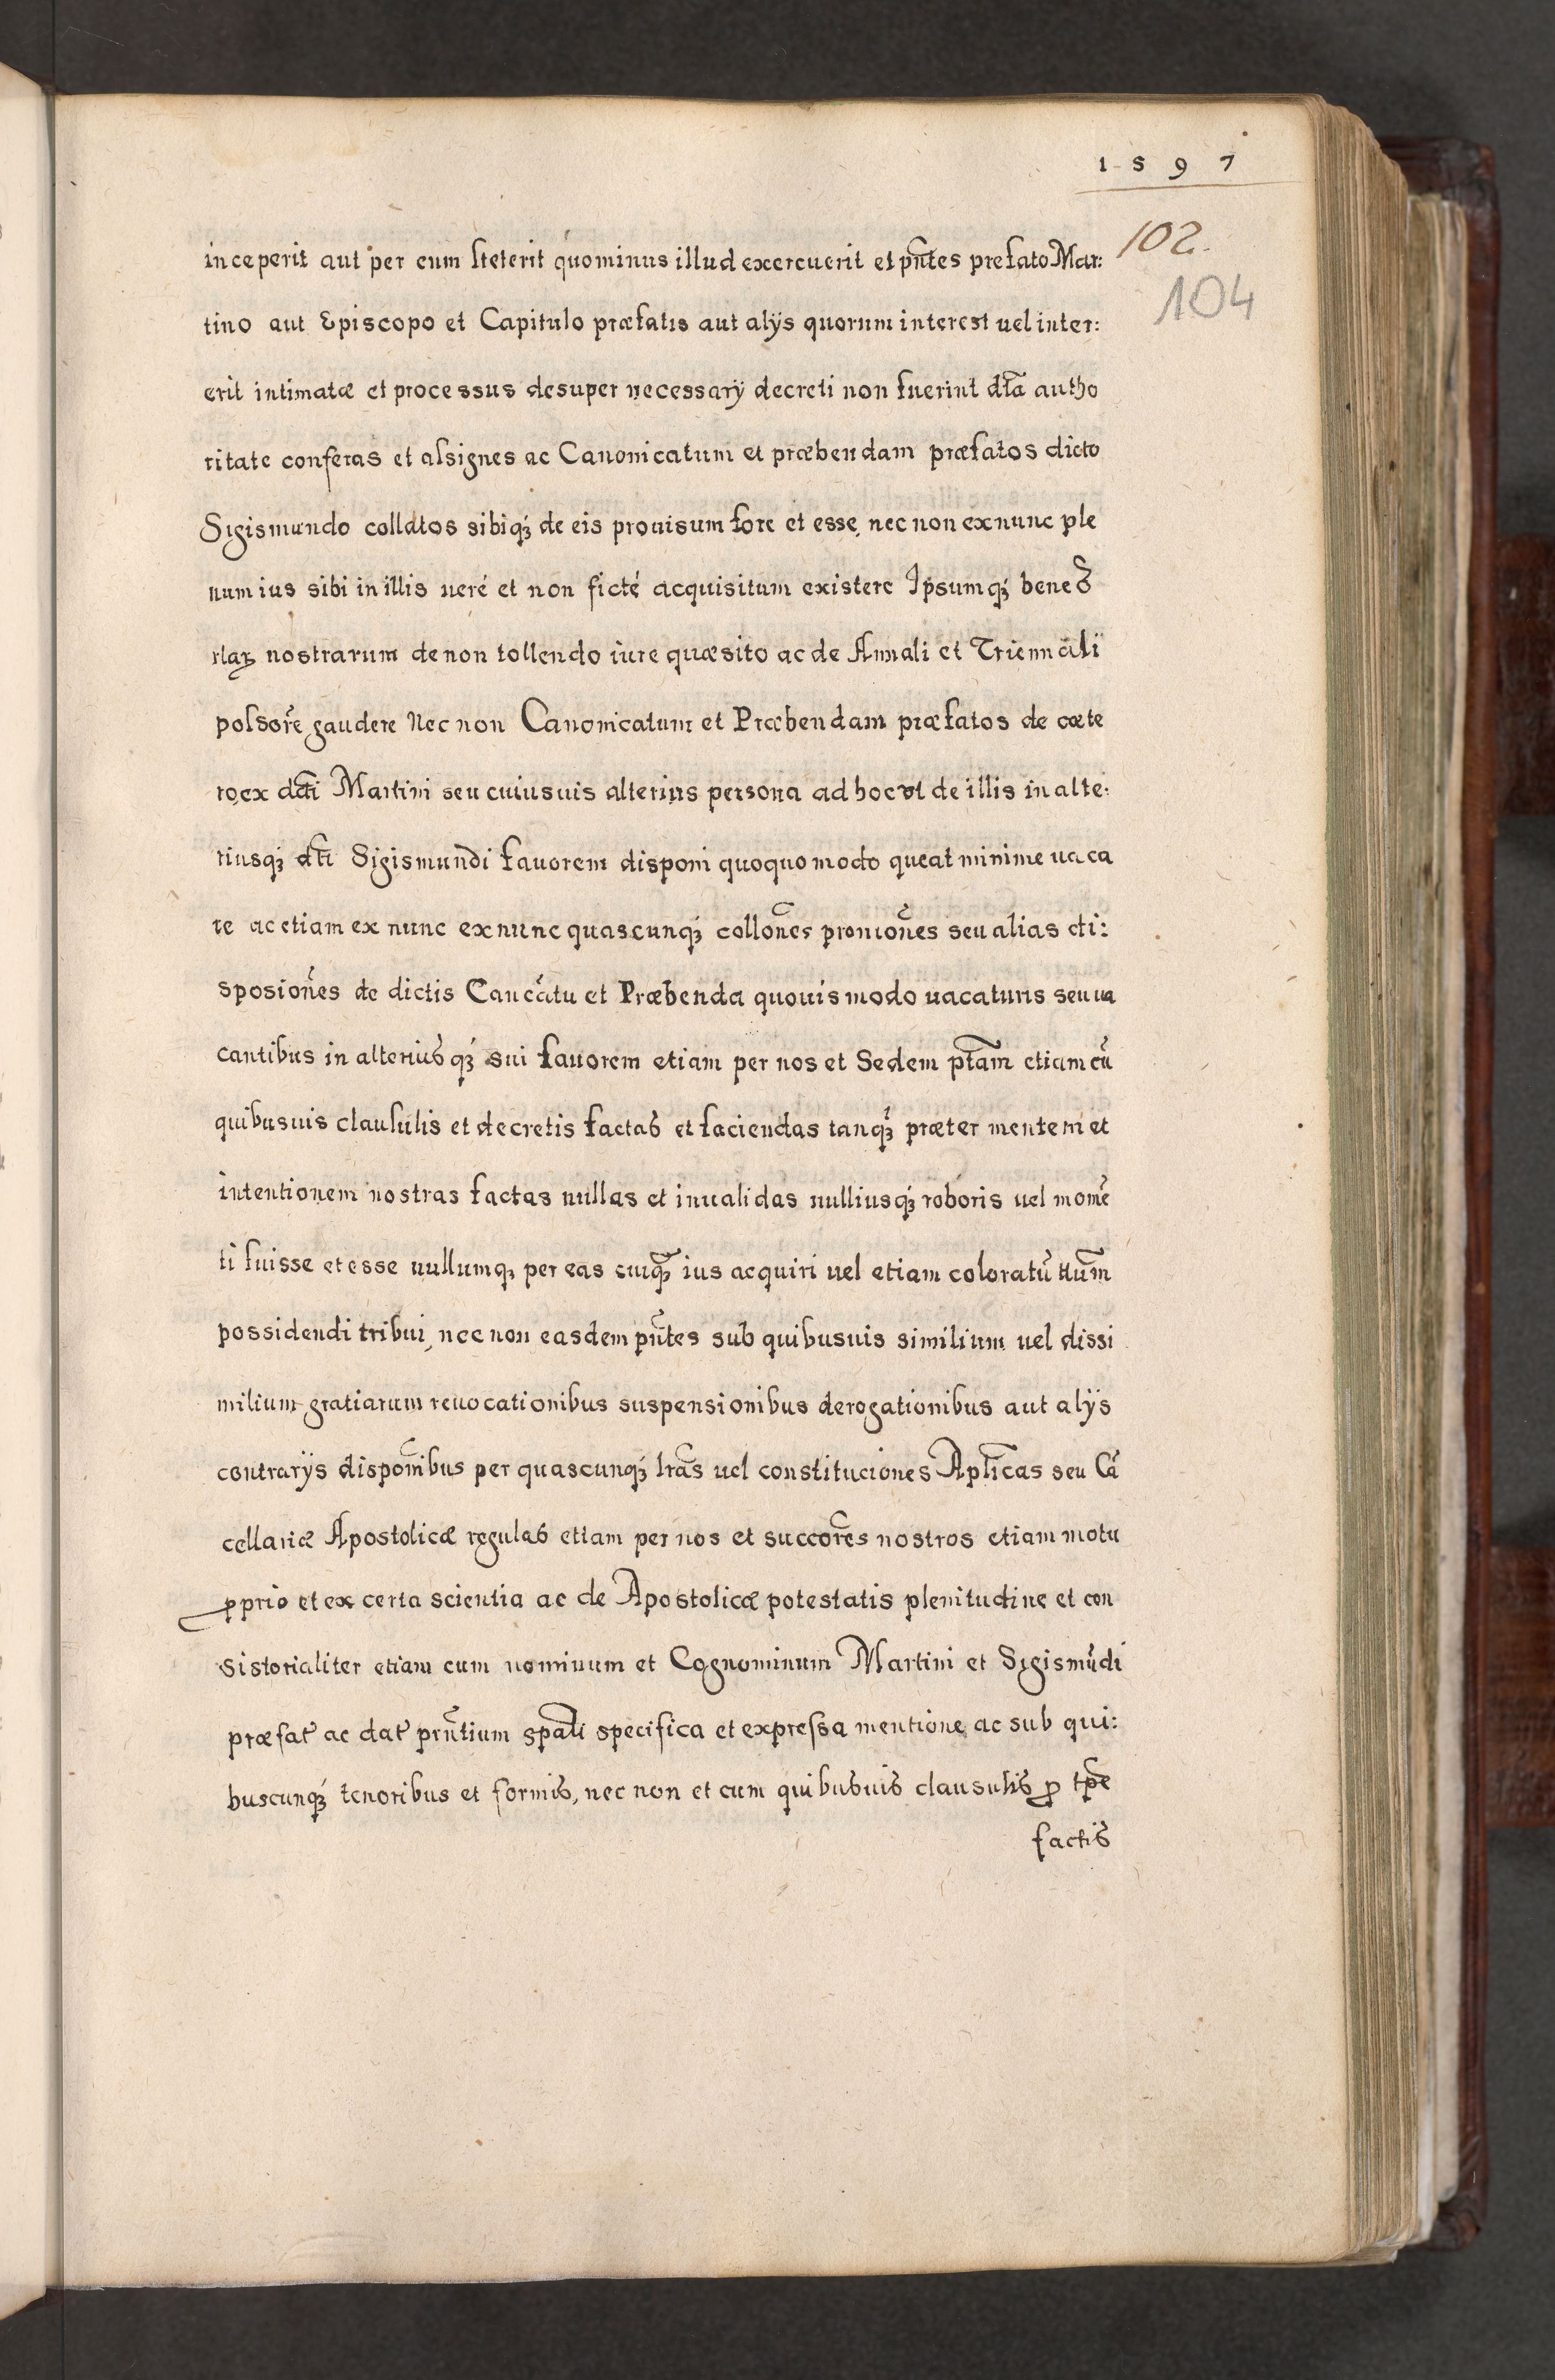 1597
102.
104
inceperit aut per eum steterit quominus illud exercuerit et pñtes prefato Mar:
tino aut Episcopo et Capitulo præfatis aut alijs quorum interest uel inter:
erit intimatæ et processus desuper necessarij decreti non fuerint dĩa autho
ritate conferas et assignes ac Canonicatum et præbendam præfatos dicto
Sigismundo collatos sibiq́ de eis prouisum fore et esse, nec non ex nunc ple
num ius sibi in illis ueré et non ficté acquisitum existere Ipsumq́ bene
rlaꝝ nostrarum de non tollendo iure quæsito ac de Annali et Triennali
possore gaudere Nec non Canonicatum et Præbendam præfatos de cæte
ro, ex dcti Martini seu cuiusuis alterius persona ad hoc vt de illis in alte:
riusq́ dti Sigismundi fauorem disponi quoquomodo queat minime uaca
re ac etiam ex nunc ex nunc quascunq́ collones prouiones seu alias di:
sposiones de dictis Cancatu et Præbenda quouismodo uacaturis seu ua
cantibus in alteriusq́ sui fauorem etiam per nos et Sedem ptam etiam cũ
quibusuis clausulis et decretis factas et faciendas tanq́ præter mentem et
intentionem nostras factas nullas et inualidas nulliusq́ roboris uel momẽ
ti fuisse et esse nullumq́ per eas cuiq́ ius acquiri uel etiam coloratũ ttum
possidendi tribui, nec non easdem pñtes sub quibusuis similium uel dissi
milium gratiarum reuocationibus suspensionibus derogationibus aut alijs
contrarijs disponibus per quascunq́ lras uel constituciones Aplicas seu Cã
cellariæ Apostolicæ regulas etiam per nos et succores nostros etiam motu
ꝓprio et ex certa scientia ac de Apostolicæ potestatis plenitudine et con
sistorialiter etiam cum nominum et Cognominum Martini et Sigismũdi
præfat̃ ac dat̃ prñtium spali specifica et expressa mentione ac sub qui:
buscunq́ tenoribus et formis, nec non et cum quibusuis clausulis ꝓ tpe
factis